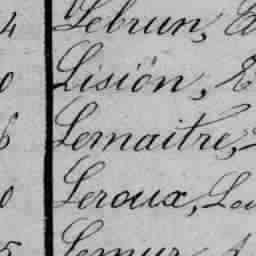 4 Lebrun,
0 Lisiön,
6 Lemaitre,
0 Leroux, Lou
5 Lemur